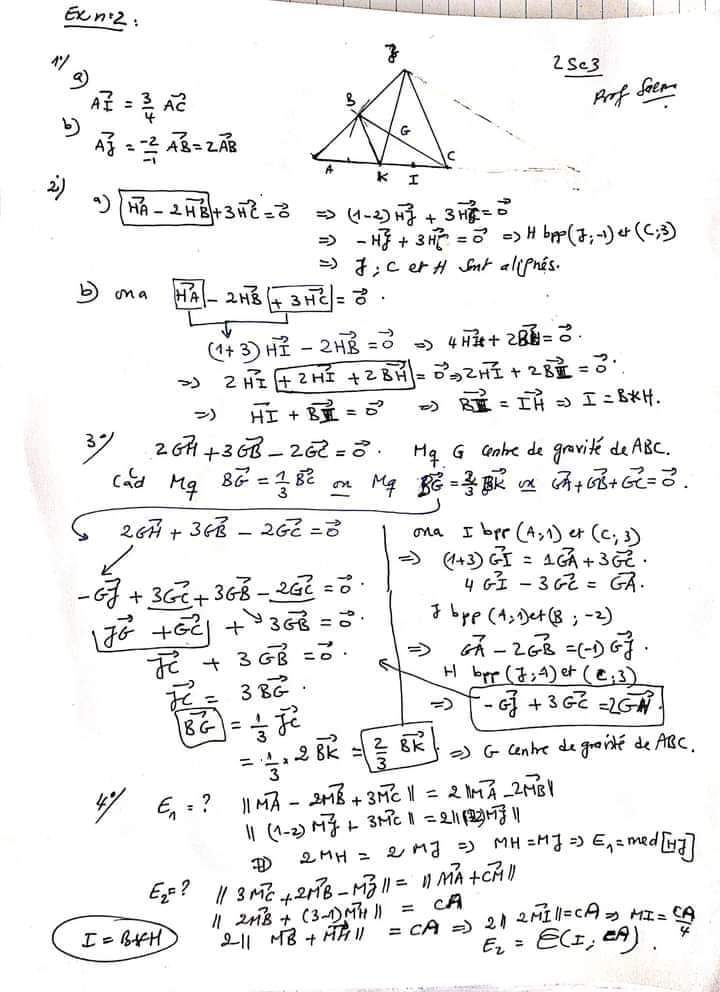 Ex n°2 :
2Sc3
Prof Salem
1°/ a)
AI⃗ = 3/4 AC⃗
b)
AJ⃗ = -2/-1 AB⃗ = 2AB⃗
J
B
G
A K I C
2°/
a) HA⃗ - 2HB⃗ + 3HC⃗ = 0⃗ ⇒ (1-2)HJ⃗ + 3HC⃗ = 0⃗
⇒ -HJ⃗ + 3HC⃗ = 0⃗ ⇒ H bpp(J,-1) et (C;3)
⇒ J, C et H sont alignés.
b) on a HA⃗ - 2HB⃗ + 3HC⃗ = 0⃗.
(1+3)HI⃗ - 2HB⃗ = 0⃗ ⇒ 4HI⃗ + 2BH⃗ = 0⃗.
⇒ 2HI⃗ + 2HI⃗ + 2BH⃗ = 0⃗ ⇒ 2HI⃗ + 2BI⃗ = 0⃗.
⇒ HI⃗ + BI⃗ = 0⃗ ⇒ BI⃗ = IH⃗ ⇒ I = B*H.
3°/ 2GH⃗ + 3GB⃗ - 2GC⃗ = 0⃗. Mq G centre de gravité de ABC.
Càd Mq BG⃗ = 1/3 BC⃗ ou Mq BG⃗ = 2/3 BK⃗ ou GA⃗ + GB⃗ + GC⃗ = 0⃗.
2GH⃗ + 3GB⃗ - 2GC⃗ = 0⃗
-GJ⃗ + 3GC⃗ + 3GB⃗ - 2GC⃗ = 0⃗.
JG⃗ + GC⃗ + 3GB⃗ = 0⃗.
JC⃗ + 3GB⃗ = 0⃗.
JC⃗ = 3BG⃗.
BG⃗ = 1/3 JC⃗
= 1/3 × 2BK⃗ = 2/3 BK⃗ ⇒ G centre de gravité de ABC.
on a I bpp(A,1) et (C;3)
⇒ (1+3)GI⃗ = 1GA⃗ + 3GC⃗.
4GI⃗ - 3GC⃗ = GA⃗.
J bpp(A,1) et (B ; -2)
⇒ GA⃗ - 2GB⃗ = (-1)GJ⃗.
H bpp(J,-1) et (C;3)
⇒ -GJ⃗ + 3GC⃗ = 2GH⃗.
4°/ E₁ = ? ||MA⃗ - 2MB⃗ + 3MC⃗|| = 2||MA⃗ - 2MB⃗||
||(1-2)MJ⃗ + 3MC⃗|| = 2||(1-2)MJ⃗||
2MH = 2MJ ⇒ MH = MJ ⇒ E₁ = med[HJ]
E₂ = ? ||3MC⃗ + 2MB⃗ - MJ⃗|| = ||MA⃗ + CM⃗||
||2MB⃗ + (3-1)MH⃗|| = CA
I = B*H
2||MB⃗ + MH⃗|| = CA ⇒ 2||2MI⃗|| = CA ⇒ MI = CA/4
E₂ = C(I; CA).